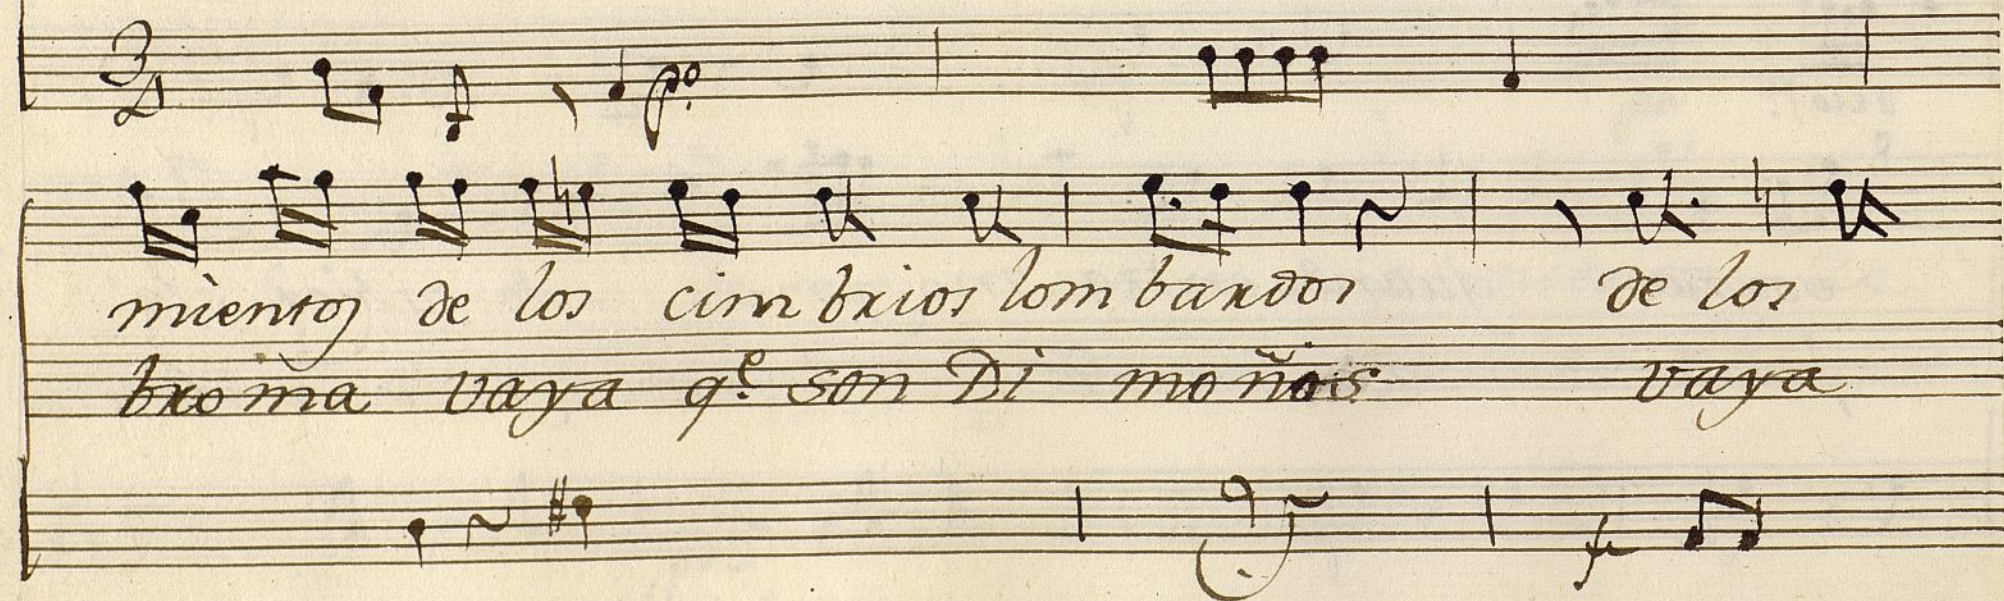 3/4
po
mientos de los cimbrios lombardos de los
broma vaya qe. son Dimoños vaya
f